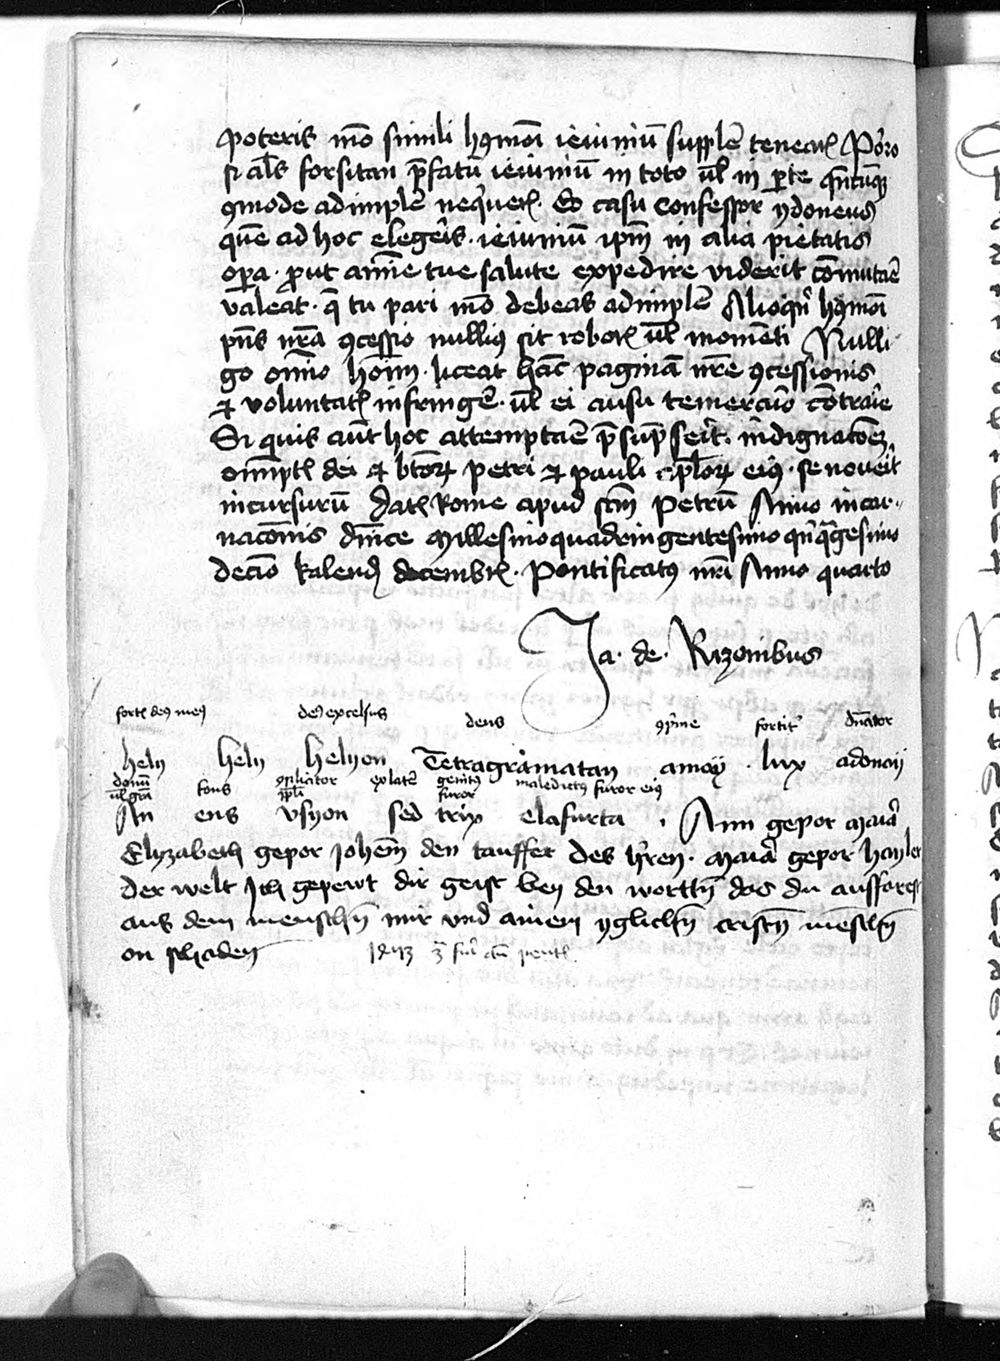 poteris mō simili hꝯmōi ieiuniū supplē teneār Porro
si als forsitan p̄fatū ieiuniū in toto ul in p̱te
ꝯmode adimplē neqͥueris Eo casu confessor ydoneus
quē ad hoc elegeris · ieiuniū ipm̄ in alia pietatis
oꝑa · prout anīe tue salute expedire viderit cōmutare
valeat · q̄ tu pari mō debeas adimplē Alioqn hꝯmōi
pn̄s nrā ꝯcessio nullius sit roboris ul momēti Nulli
go oīno hoīm liceat hāc paginā nrē ꝯcessionis
et voluntatis infringē · ul ei ausu temerario cōtraire
Si quis aūt hoc attemptare p̄supserit · indignatōem
omīptis dei et btōrꝝ petri et pauli aplōrꝝ eius · se noverit
incursurū Datis Rome apud scm̄ Petrū Anno incar-
nacōnis dn̄ice Millesimoquadringentesimo qnqͣgesimo
decīo kalend decembris · Pontificatꝰ nrī Anno quarto
Ja · de · Rizonibus
fortis deꝰ meꝰ deꝰ excelsus deus fortit dn̄ator
hely hely helyon Tetragrāmatan amay · lux adonay
donū fons explatē genitꝰ maledictꝰ furor eiꝰ
ul grā furor
An ens usyon sed trix elafurta · Ann gepor Maria
Elyzabeth gepor Johēm den tauffer des hrēn · Maria gepor hayler
der welt Ich gepewt dir geist bey den worttn̄ das du ausfarest
aus dem menschn̄ mir vnd ainem yglichn̄ cristn̄ mēschn̄
on schaden